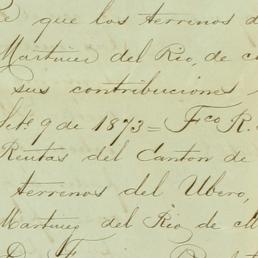 que los terrenos d
Martinez del Rio, de c
sus contribuciones
9 de 1873 = Fco R.
Rentas del Canton de
terrenos del Ubero,
Martinez del Rio, de